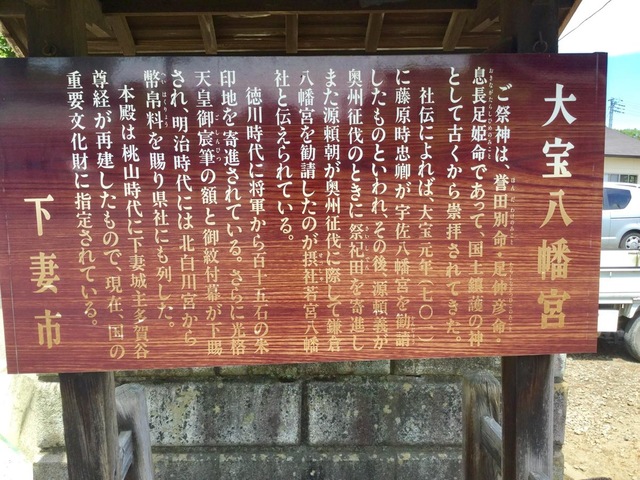 大宝八幡宮
ご祭神は、誉田別命・足仲彦命・
息長足姫命であって、国土鎮護の神
として古くから崇拝されてきた。
社伝によれば、大宝元年(七〇一)
に藤原時忠卿が宇佐八幡宮を勧請
したものといわれ、その後、源頼義が
奥州征伐のときに祭祀田を寄進し
また源頼朝が奥州征伐に際して鎌倉
八幡宮を勧請したのが摂社若宮八幡
社と伝えられている。
徳川時代に将軍から百十五石の朱
印地を寄進されている。さらに光格
天皇御宸筆の額と御紋付幕が下賜
され、明治時代には北白川宮から
幣帛料を賜り県社にも列した。
本殿は桃山時代に下妻城主多賀谷
尊経が再建したもので、現在、国の
重要文化財に指定されている。
下妻市